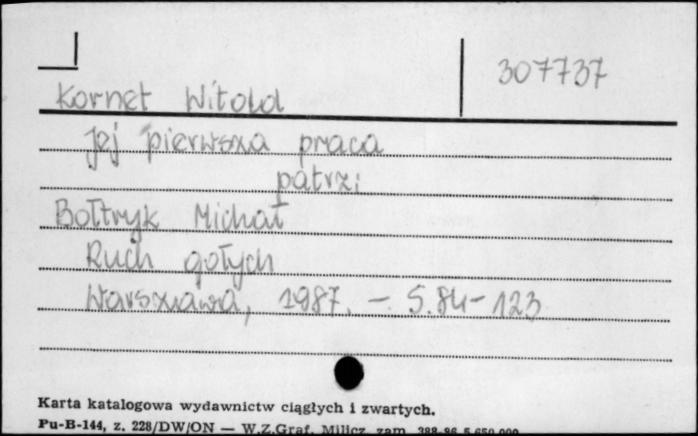 307737
Kornet Witold
Jej pierwsza praca
patrz:
Bołtryk Michał
Ruch gołych
Warszawa, 1987. - S. 84-123
Karta katalogowa wydawnictw ciągłych i zwartych.
Pu-B-144, z. 228/DW/ON — W.Z.Graf. Milicz, zam. 388-86 5.650.000